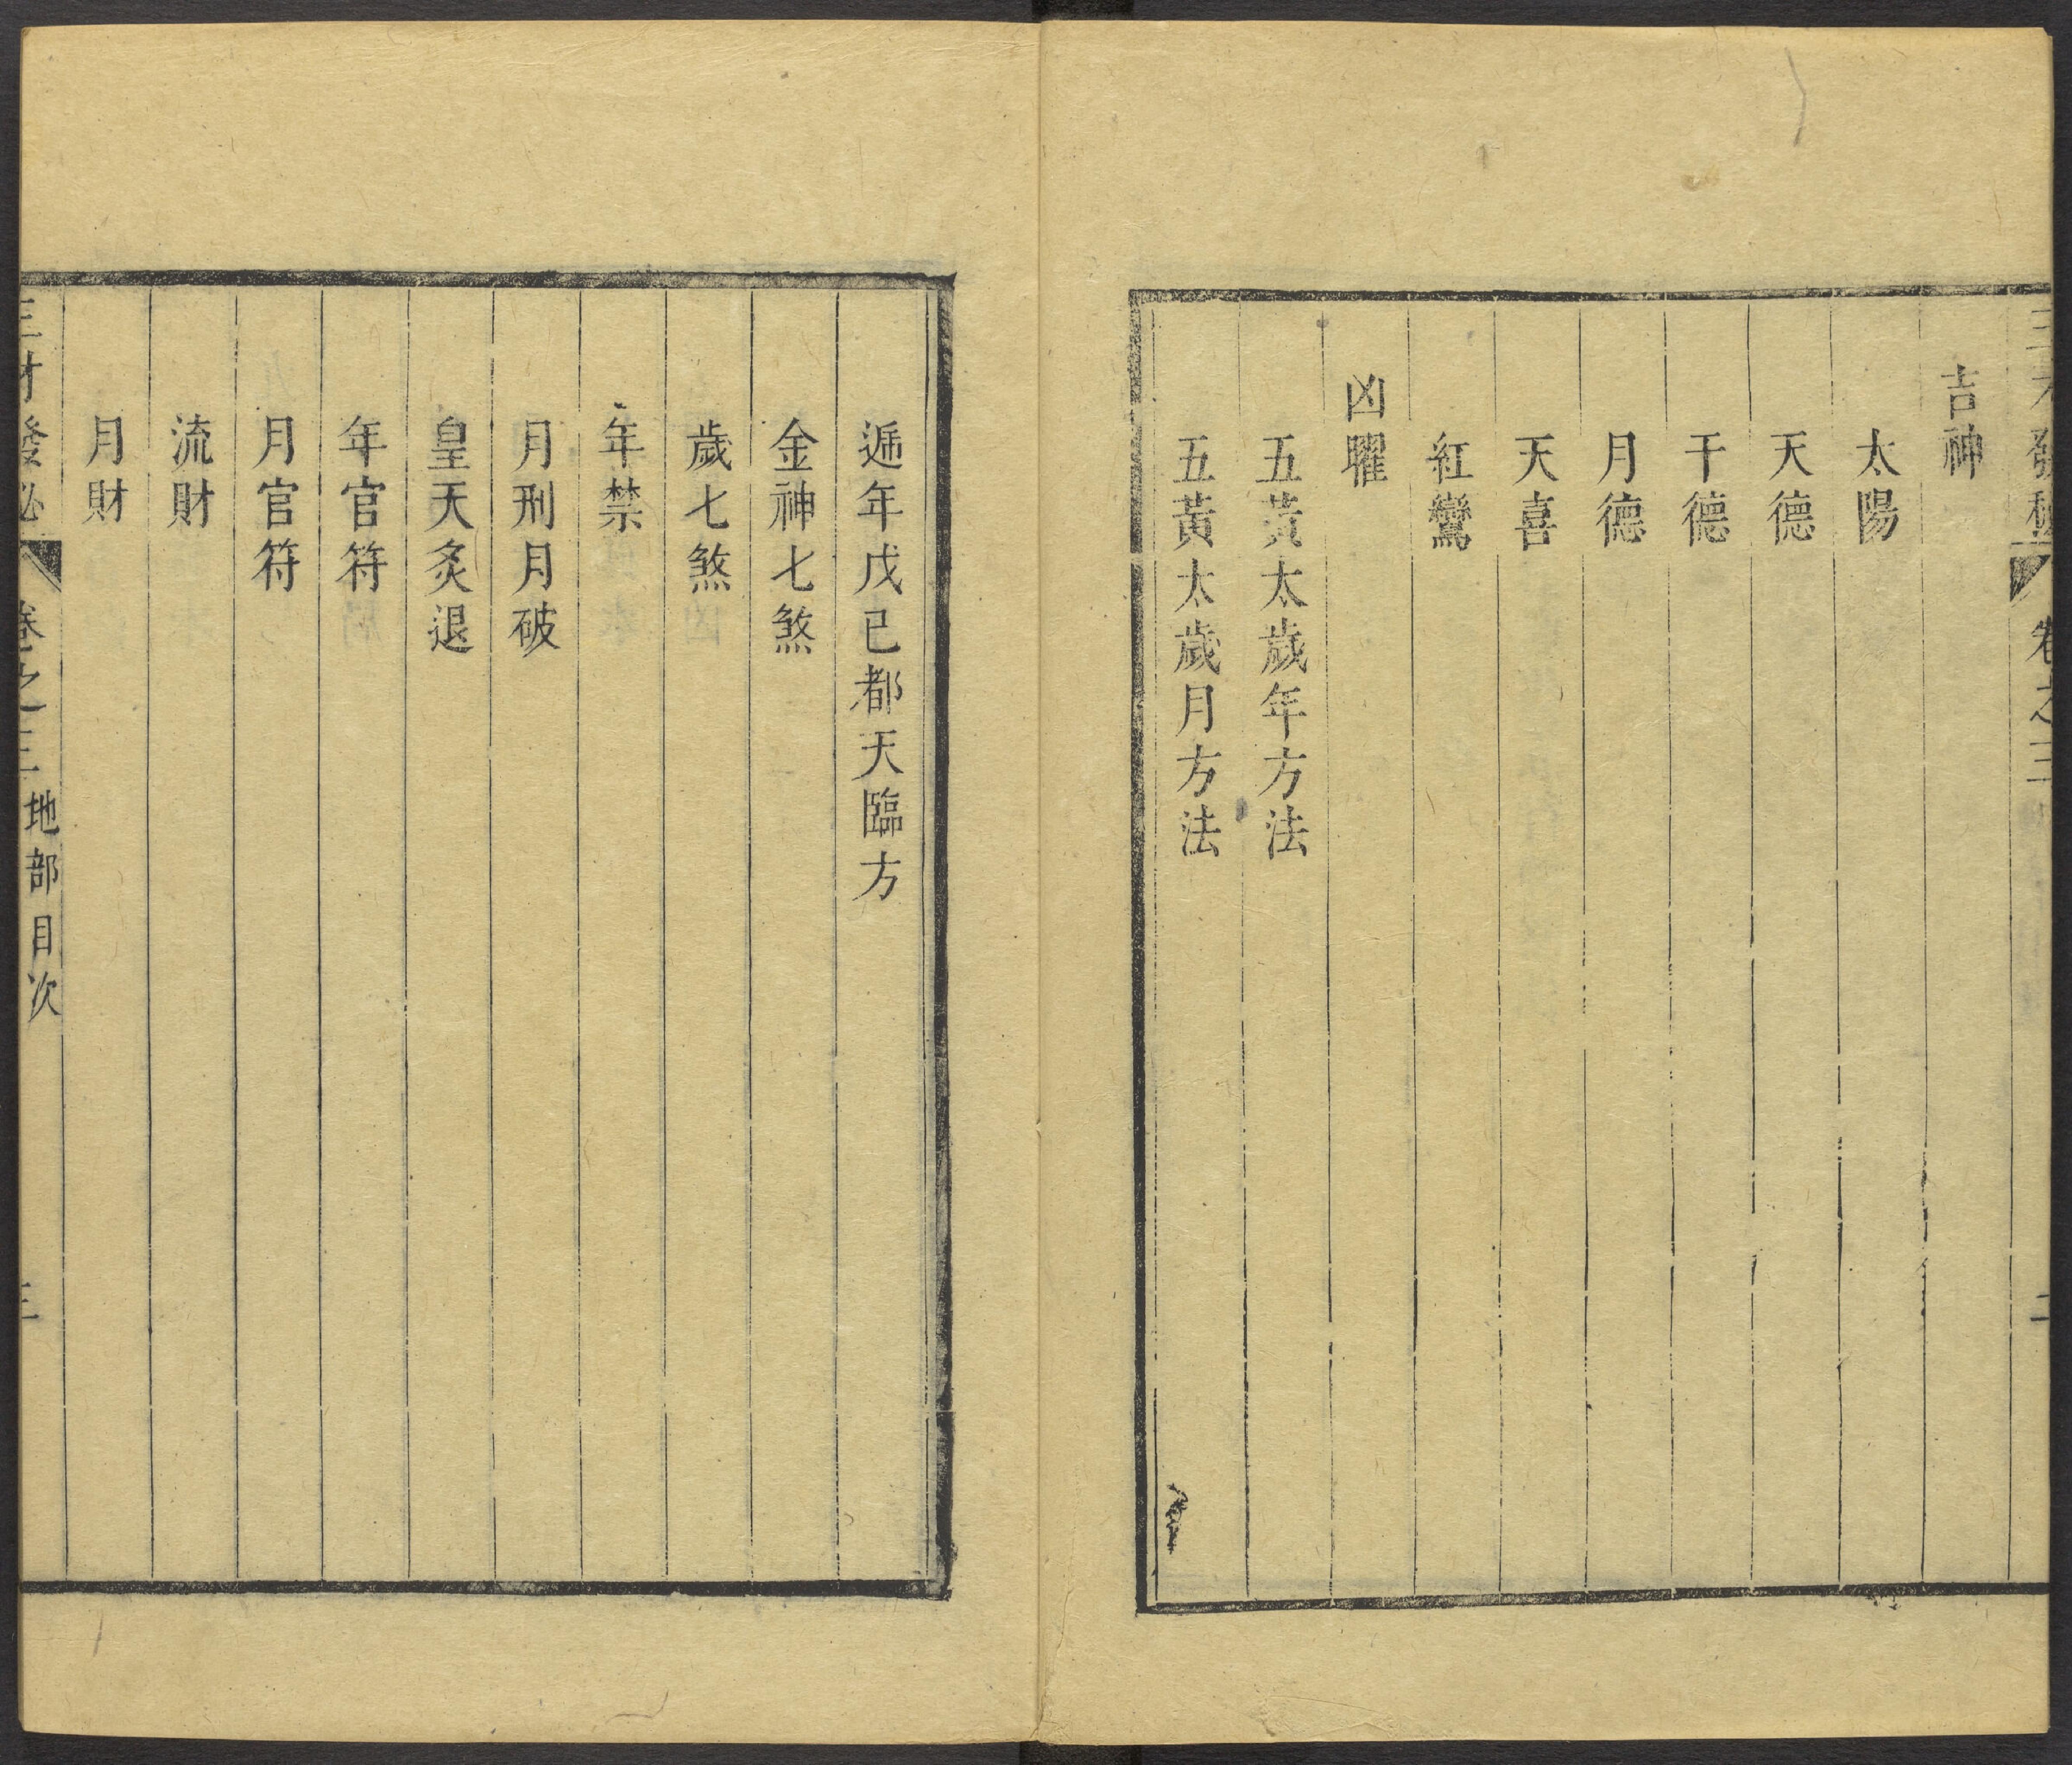 三才發秘 卷之三 二
吉神
太陽
天德
干德
月德
天喜
紅鸞
凶曜
五黃太歲年方法
五黃太歲月方法
遁年戊己都天臨方
金神七煞
歲七煞
年禁
月刑月破
皇天炙退
年官符
月官符
流財
月財
三才發秘 卷之三 地部目次 三